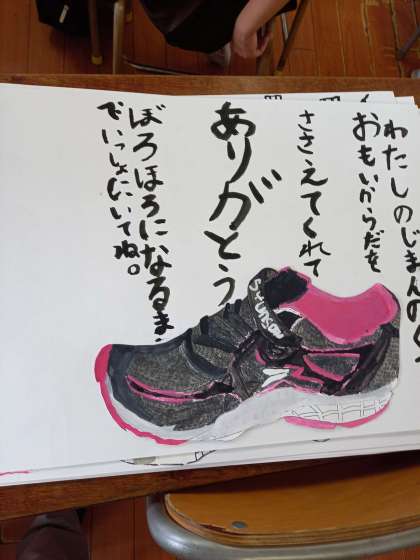 わたしのじまんのく
おもいからだを
ささえてくれて
ありがとう
ぼろぼろになるま
でいっしょにいてね。